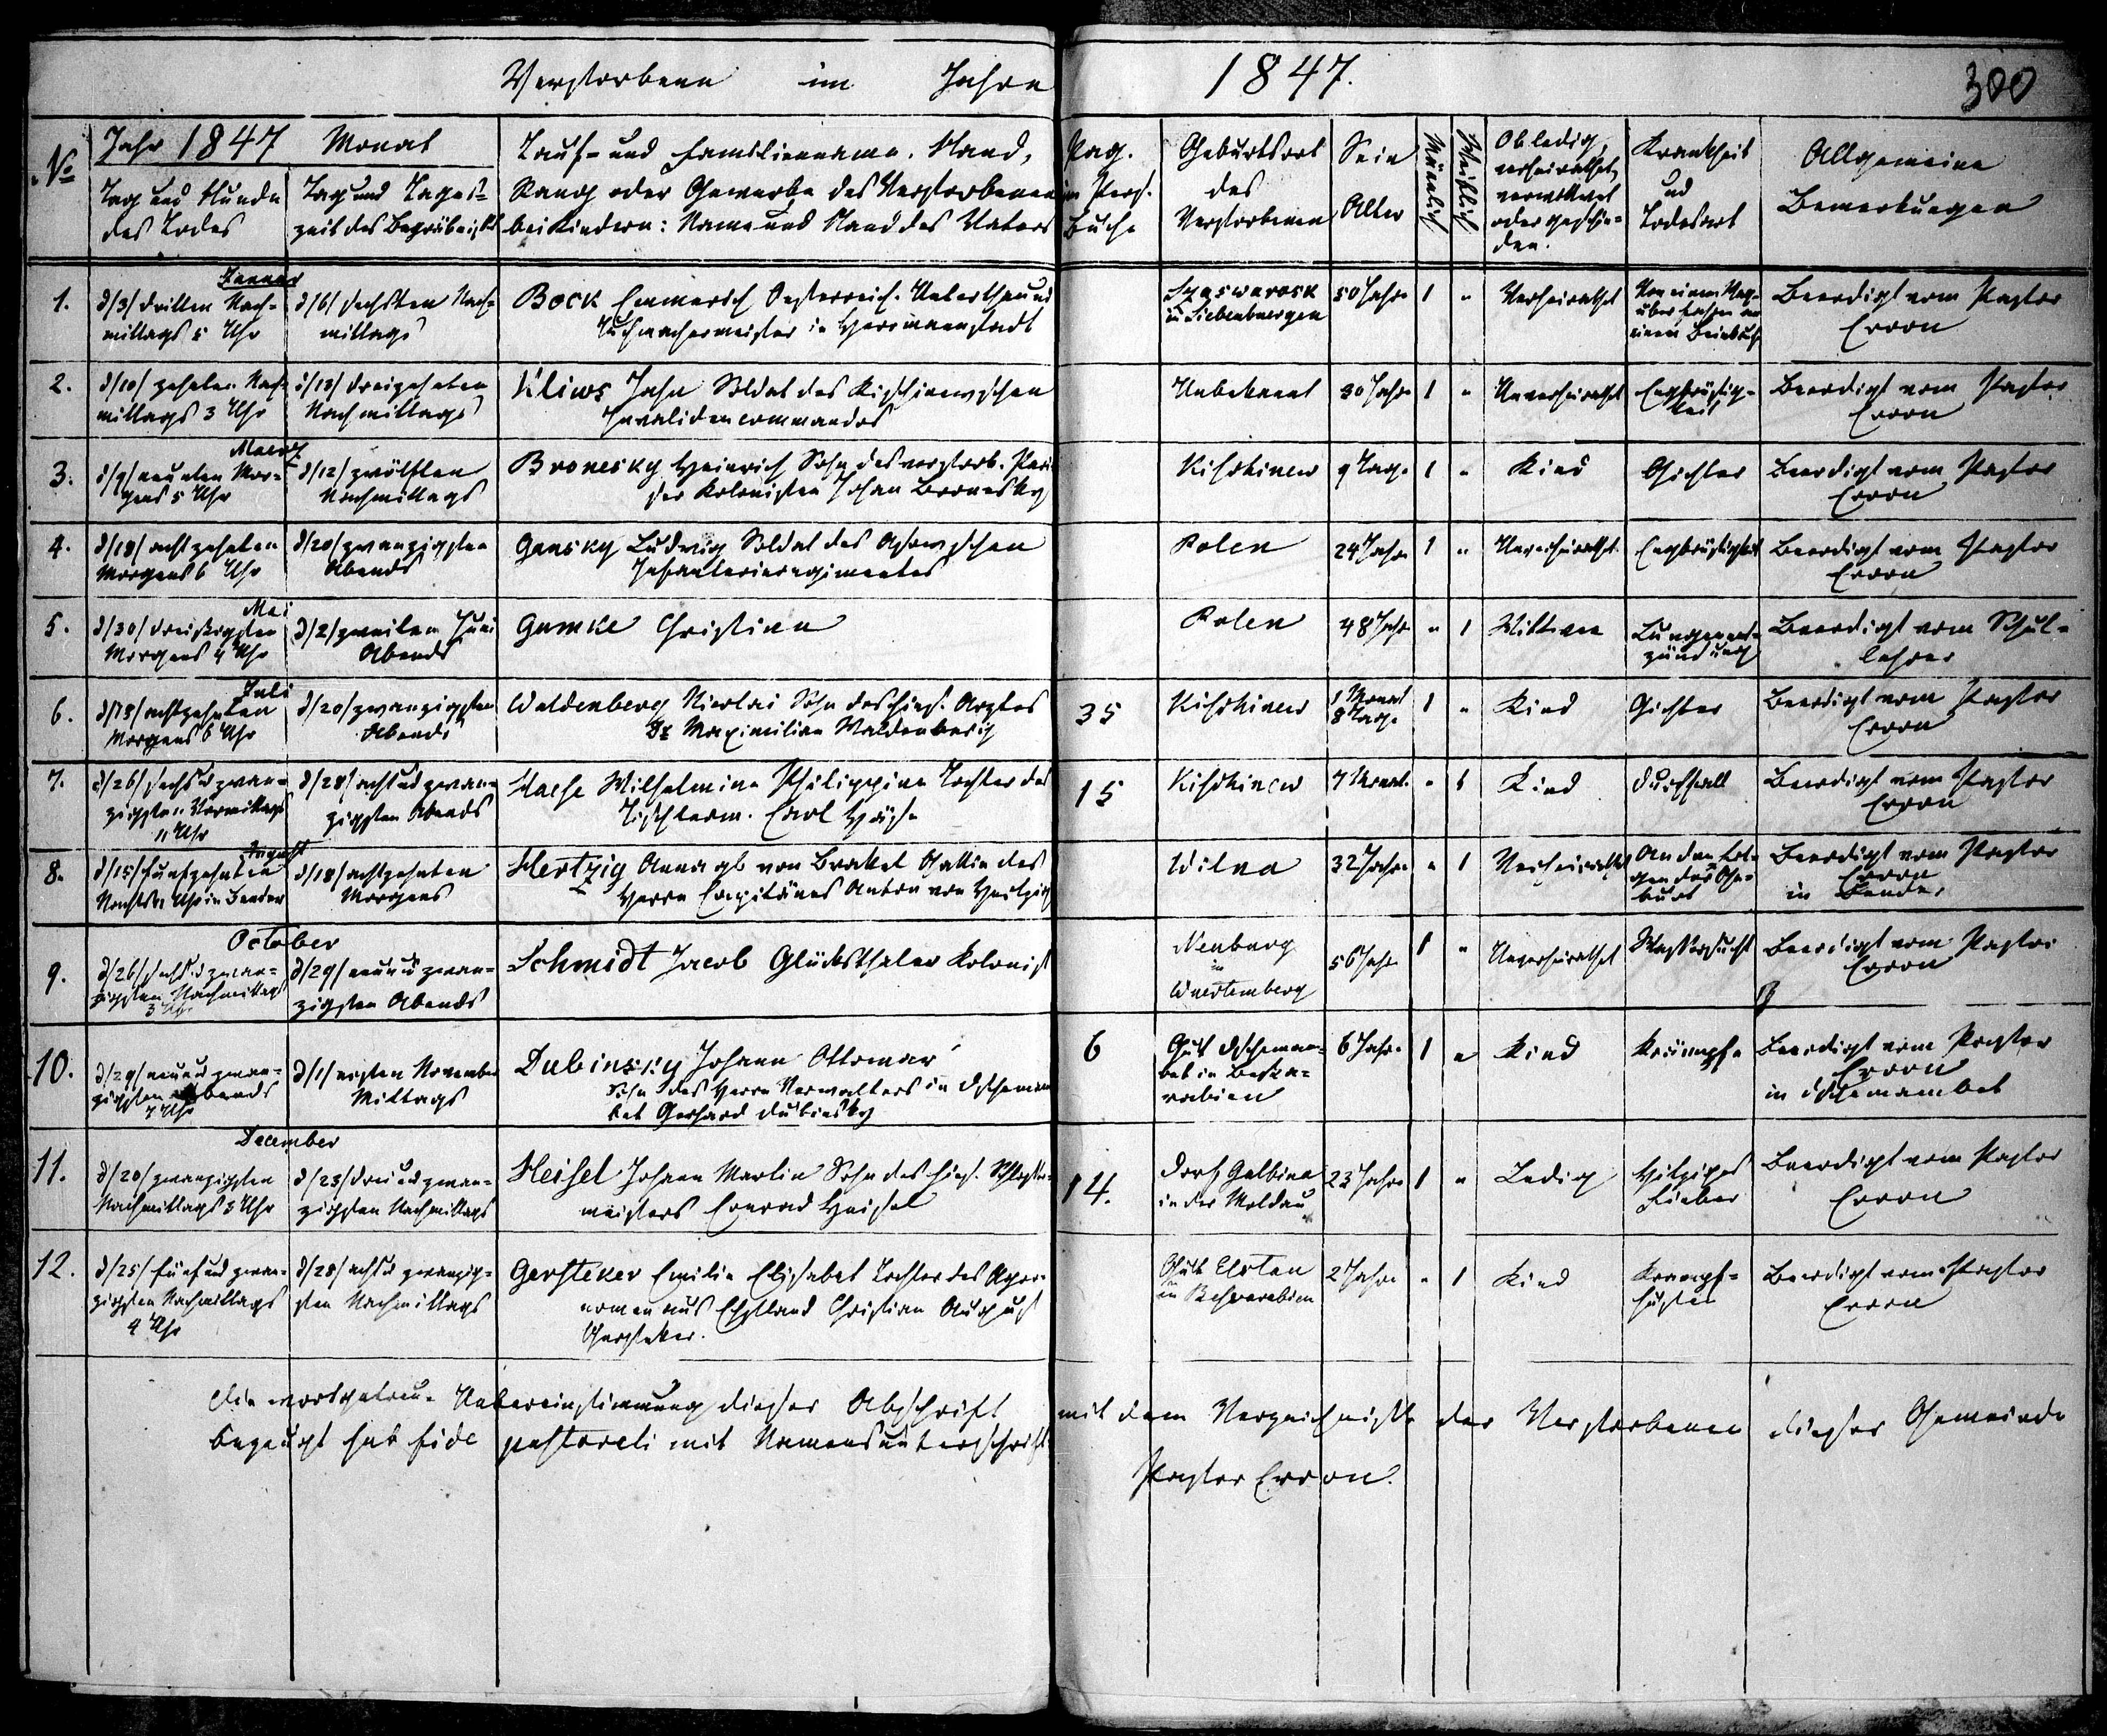 Verstorbene im Jahre 1847.
300
No
Jahr 1847 Monat
Tag und Stunde des Todes
Tag und Tageszeit des Begräbnisses
Tauf- und Familienname, Stand,
Rang oder Gewerbe des Verstorbenen
bei Kindern: Name und Stand des Vaters
Pag.
im Pers.
Buche
Geburtsort
des
Verstorbenen
Sein
Alter
Männlich
Weiblich
Ob ledig,
verheirathet,
verwittwet
oder geschie-
den.
Krankheit
und
Todesart
Allgemeine
Bemerkungen
Januar
1. d/3/ dritten Nach-
mittags 5 Uhr
d/6/ sechsten Nach-
mittags
Bock Emmerich Oesterreich. Unterthan und
Tuchmachermeister in Herrmannstadt
in Siebenbuergen
50 Jahre 1 " Verheirathet
Beerdigt vom Pastor
Erron
2. d/10/ zehnten Nach-
mittags 3 Uhr
d/13/ dreizehnten
Nachmittags
Kliws Jahn Soldat des Kischinewschen
Invalidencommandos
Unbekannt 30 Jahre 1 " Unverheirathet Engbrüstig-
keit
Beerdigt vom Pastor
Erron
Maerz
3. d/9/ neunten Mor-
gens 5 Uhr
d/12/ zwölften
Nachmittags
Bronesky Heinrich Sohn des verstorb. Pari-
ser Kolonisten Johan Bronesky
Kischinew 9 Tage 1 " Kind Gichter
Beerdigt vom Pastor
Erron
4. d/18/ achtzehnten
Morgens 6 Uhr
d/20/ zwanzigsten
Abends
Gansky Ludwig Soldat des Asowschen
Infanterieregimentes
Polen 24 Jahre 1 " Unverheirathet Engbrüstigkeit
Beerdigt vom Pastor
Erron
Mai
5. d/30/ dreißigsten
Morgens 4 Uhr
d/2/ zweiten Juni
Abends
Gumke Christine
Polen 48 Jahr " 1 Wittwe Lungenent-
zündung
Beerdigt vom Schul-
lehrer
Juli
6. d/18/ achtzehnten
Morgens 6 Uhr
d/20/ zwanzigsten
Abends
Waldenberg Nicolai Sohn des hies. Arztes
Dr Maximilian Waldenberg
35 Kischinew 1 Monat
8 Tage
1 " Kind Gichter
Beerdigt vom Pastor
Erron
7. d/26/ sechsundzwan-
zigsten Vormittags
11 Uhr
d/28/ achtundzwan-
zigsten Abends
Haese Wilhelmine Philippine Tochter des
Tischlerm. Carl Häse
15 Kischinew 7 Monat. " 1 Kind Durchfall
Beerdigt vom Pastor
Erron
August
8. d/15/ fünfzehnten
Nachts Uhr in Bender
d/18/ achtzehnten
Morgens
Hertzig Anna gb von Brakel Gattin des
Herrn Capitänes Anton von Hertzig
Wilna 32 Jahre " 1 Verheirathet An den Fol-
gen der Ge-
burt
Beerdigt vom Pastor
Erron
in Bender
October
9. d/26/ sechsundzwan-
zigsten Nachmittags
3 Uhr
d/29/ neunundzwan-
zigsten Abends
Schmidt Jacob Glücksthaler Kolonist
Neuburg
in
Wuertemberg
56 Jahr 1 " Unverheirathet Wassersucht
Beerdigt vom Pastor
Erron
10. d/29/ neunundzwan-
zigsten Abends
7 Uhr
d/1/ ersten November
Mittags
Dubinsky Johann Ottomar
Sohn des Herrn Verwalters in Dscheman-
bet Gerhard Dubinsky
6 Gut Dscheman-
bet in Bessa-
rabien
6 Jahre 1 " Kind Krämpfe
Beerdigt vom Pastor
Erron
in Dschemambet
December
11. d/20/ zwanzigsten
Nachmittags 3 Uhr
d/23/ dreiundzwan-
zigsten Nachmittags
Heisel Johann Martin Sohn des hies. Schlosser-
meisters Conrad Heisel
14. Dorf Galbina
in der Moldau
23 Jahre 1 " Ledig Hitziges
Fieber
Beerdigt vom Pastor
Erron
12. d/25/ fünfundzwan-
zigsten Nachmittags
4 Uhr
d/28/ achtundzwanzig-
sten Nachmittags
Gersteker Emilie Elisabet Tochter des Agro-
nomen aus Ehstland Christian August
Gersteker.
Gut
in Bessarabien
2 Jahre " 1 Kind Krampf-
husten
Beerdigt vom Pastor
Erron
Die wortgetreue Uebereinstimmung dieser Abschrift mit dem Verzeichnisse der Verstorbenen dieser Gemeinde
bezeugt hat fide pastorali mit Namensunterschrift
Pastor Erron.